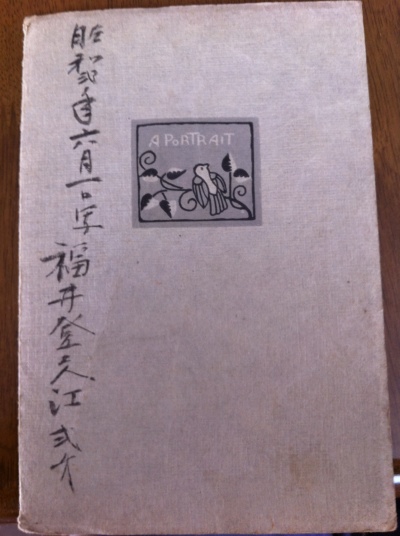 昭和弐年六月一日写 福井登久江 弐才
A PORTRAIT